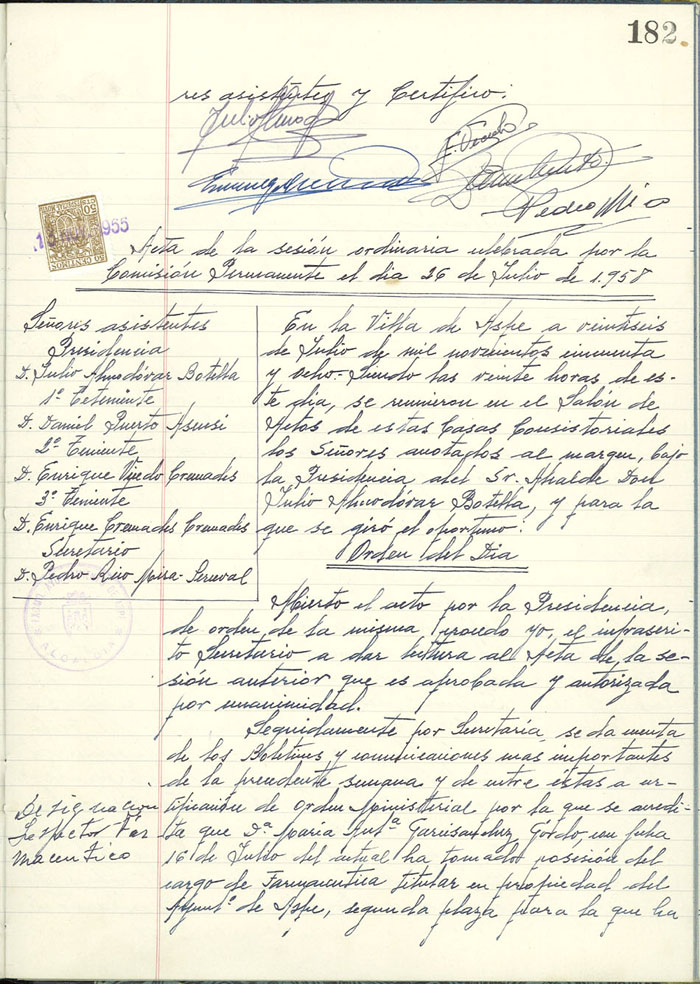 182
res asistentes y Certifico:
Pedro Mira
1955
50
CENTIMOS
Acta de la sesión ordinaria celebrada por la
Comisión Permanente el dia 26 de Julio de 1.958
Señores asistentes
Presidencia
D. Julio Almodóvar Botella
1º Teteniente
D. Daniel Puerto Asensi
2º Teniente
D. Enrique Cremades
3º Teniente
D. Enrique Cremades Cremades
Secretario
D. Pedro Rico Mira-Perceval
ALCALDIA
En la Villa de Aspe a veintiseis
de Julio de mil novecientos cincuenta
y ocho. Siendo las veinte horas de es-
te dia, se reunieron en el Salón de
Actos de estas Casas Consistoriales
los Señores anotados al margen, bajo
la Presidencia del Sr. Alcalde Don
Julio Almodóvar Botella, y para la
que se giró el oportuno:
Orden del Dia
Abierto el acto por la Presidencia,
de orden de la misma, procedo yo, el infrascri-
to Secretario a dar lectura al Acta de la se-
sión anterior que es aprobada y autorizada
por unanimidad.
Seguidamente por Secretaría, se da cuenta
de los Boletines y comunicaciones mas importantes
de la precedente semana y de entre éstas a cer-
tificación de Orden Ministerial por la que se acredi-
ta que Dª María Antª Gordo, con fecha
16 de Julio del actual ha tomado posesión del
cargo de Farmaceutica titular en propiedad del
Ayuntº de Aspe, segunda plaza para la que ha
Designación
Inspector Far
maceutico